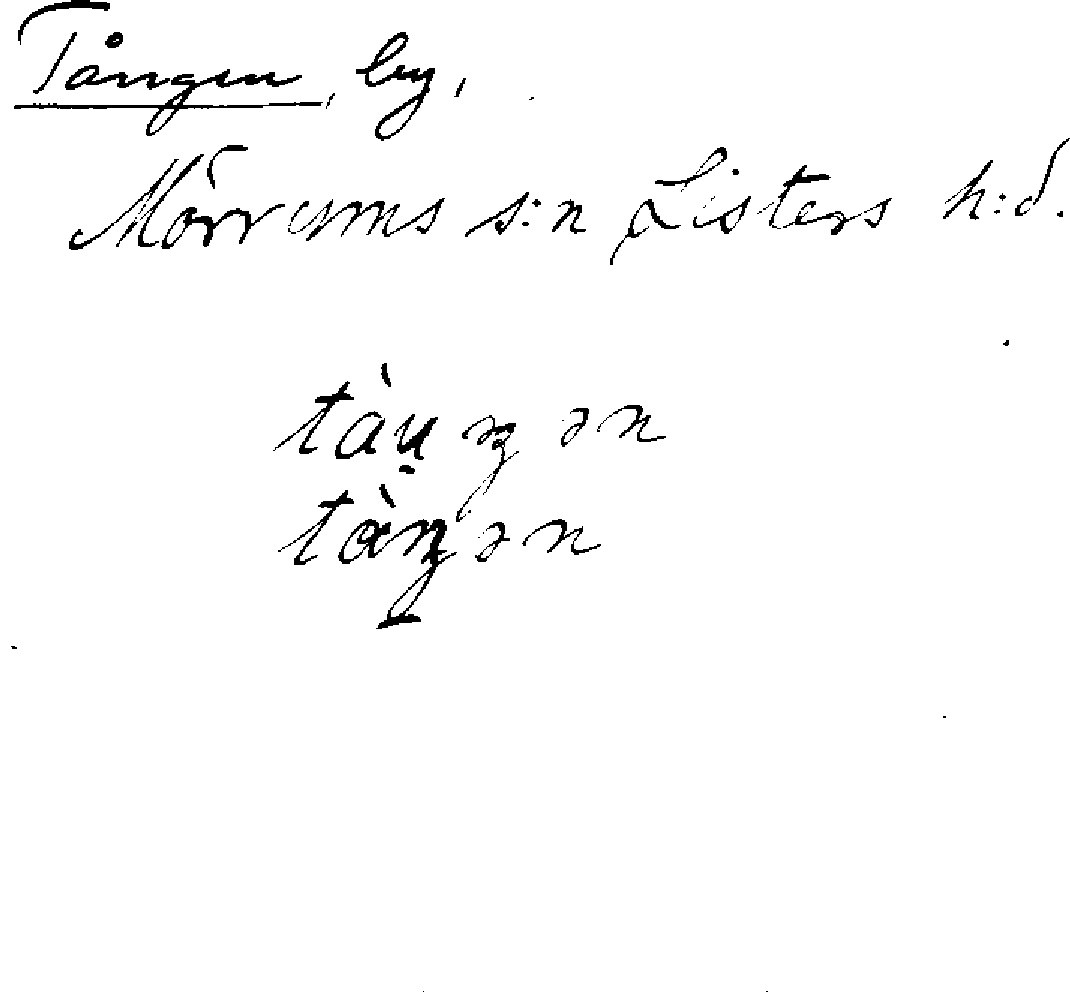 Tången, by,
Mörrums s:n Listers h:d.
tàu̠ŋən
tàŋən